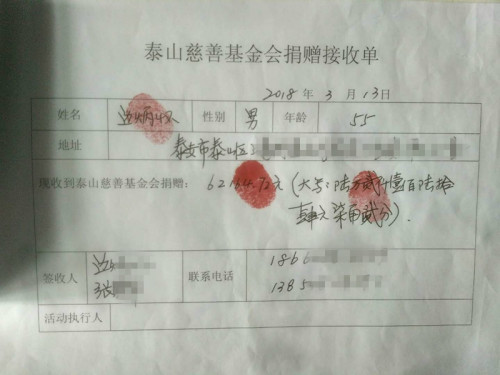 泰山慈善基金会捐赠接收单
2018 年 3 月 13 日
姓名 性别 男 年龄 55
地址 泰安市泰山区
现收到泰山慈善基金会捐赠: 62164.72元 (大写: 陆万贰仟壹百陆拾
肆元柒角贰分).
186
签收人 联系电话
张 1385
活动执行人